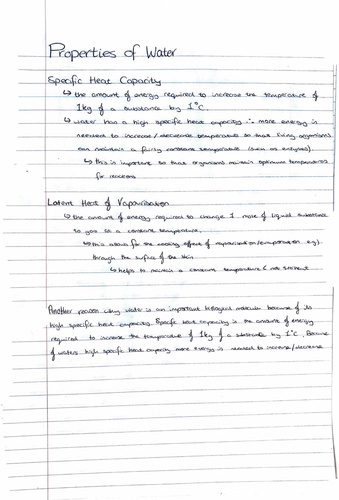 Properties of Water
Specific Heat Capacity
↳ the amount of energy required to increase the temperature of
1kg of a substance by 1°C.
↳ water has a high specific heat capacity ∴ more energy is
needed to increase/decrease temperature so that living organisms
can maintain a fairly constant temperature (such as enzymes).
↳ this is important so that organisms maintain optimum temperatures
for reactions
Latent Heat of Vapourisation
↳ the amount of energy required to change 1 mole of liquid substance
to gas at a constant temperature.
↳ this allows for the cooling effect of vapourisation/evaporation eg)
through the surface of the skin
↳ helps to maintain a constant temperature &
Another reason why water is an important biological molecule because of its
high specific heat capacity. Specific heat capacity is the amount of energy
required to increase the temperature of 1kg of a substance by 1°C. Because
of waters high specific heat capacity more energy is needed to increase/decrease